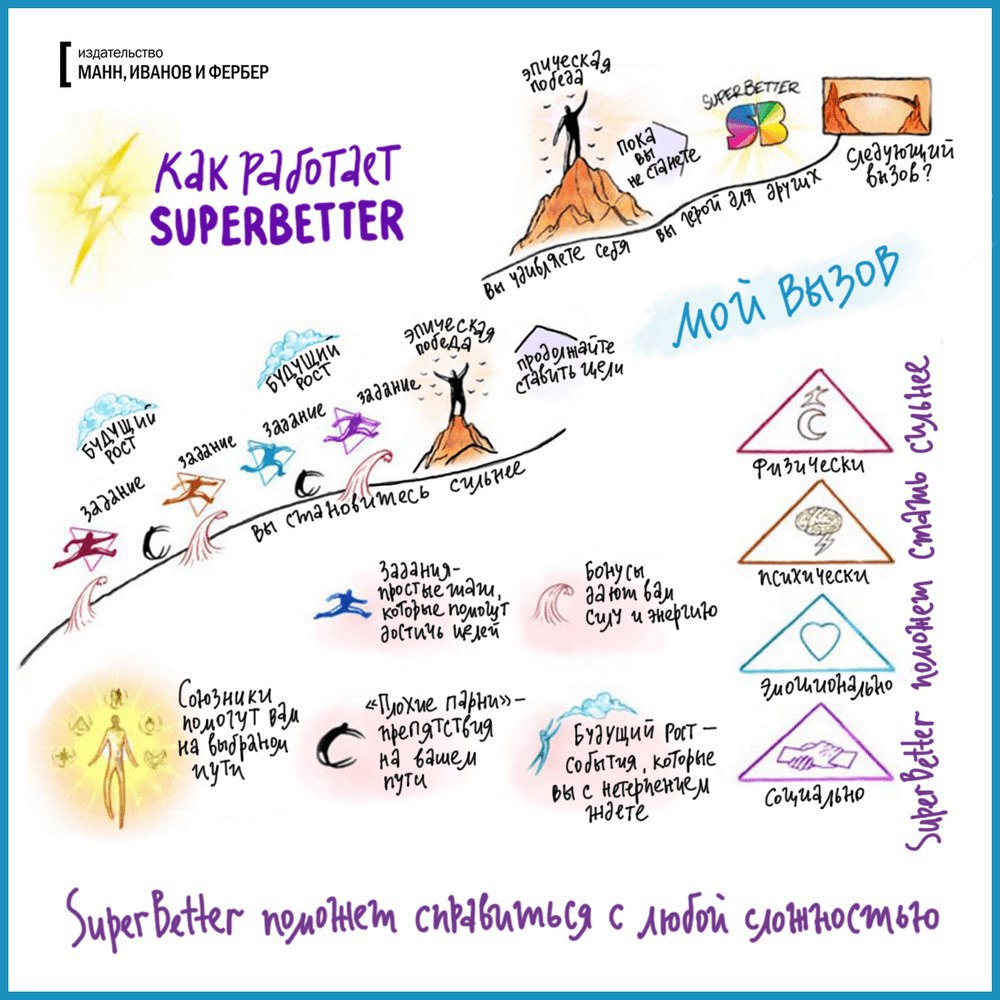 издательство
МАНН, ИВАНОВ И ФЕРБЕР
Как работает
SUPERBETTER
эпическая
победа
пока
вы
не станете
SUPERBETTER
SB
Следующий
вызов?
Вы удивляете себя
вы герой для других
Мой вызов
Будущий
рост
Будущий
рост
эпическая
победа
продолжайте
ставить цели
задание
задание
задание
задание
Вы становитесь сильнее
Физически
Психически
Эмоционально
Социально
SuperBetter поможет стать сильнее
Задания-
простые шаги,
которые помогут
достичь целей
Бонусы
дают вам
силу и энергию
Союзники
помогут вам
на выбраном
пути
«Плохие парни»-
препятствия
на вашем
пути
Будущий рост –
события, которые
вы с нетерпением
ждете
SuperBetter поможет справиться с любой сложностью